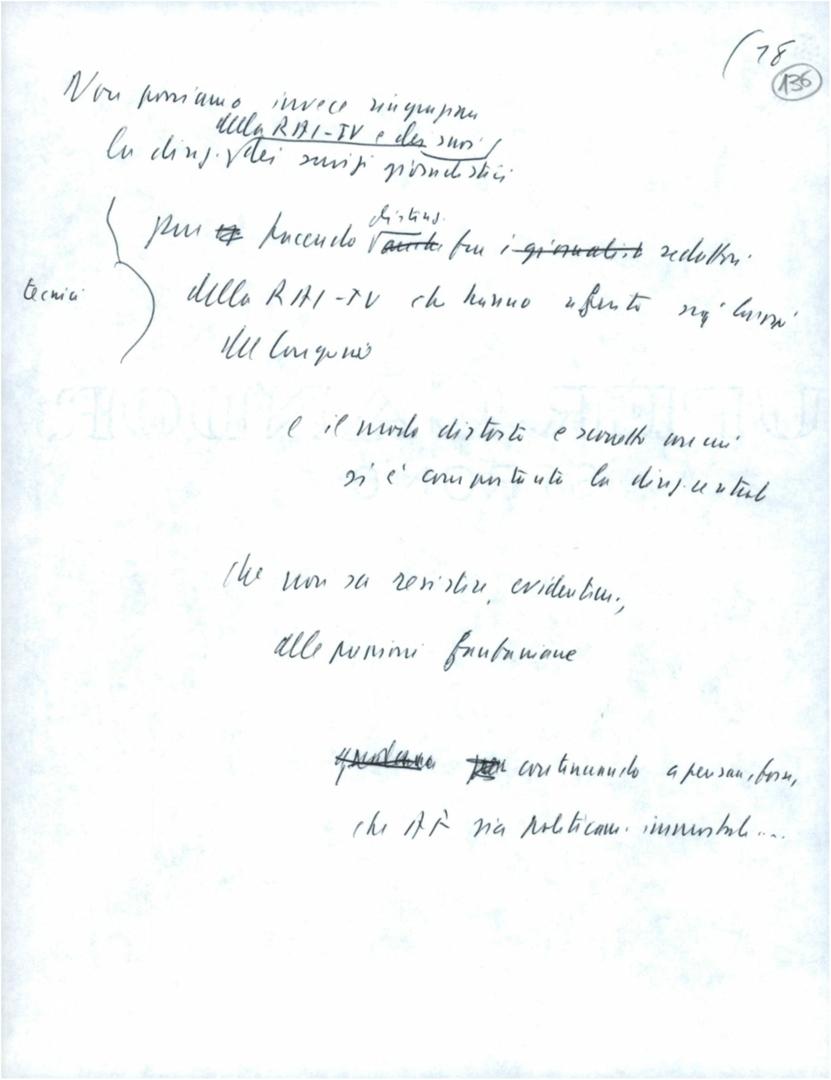 (18
136
Non possiamo invece ringraziare
della RAI-TV e dei suoi
la direz. dei servizi giornalistici
distinz.
pur facendo anche fra i giornalisti redattori
tecnici
della RAI-TV che hanno riferito sui lavori
del Congresso
e il modo distorto e scorretto con cui
si è comportata la direz. centrale
che non sa resistere, evidentem.,
alle pressioni fanfaniane
continuando a pensare, forse,
che AF sia politicam. immortale....